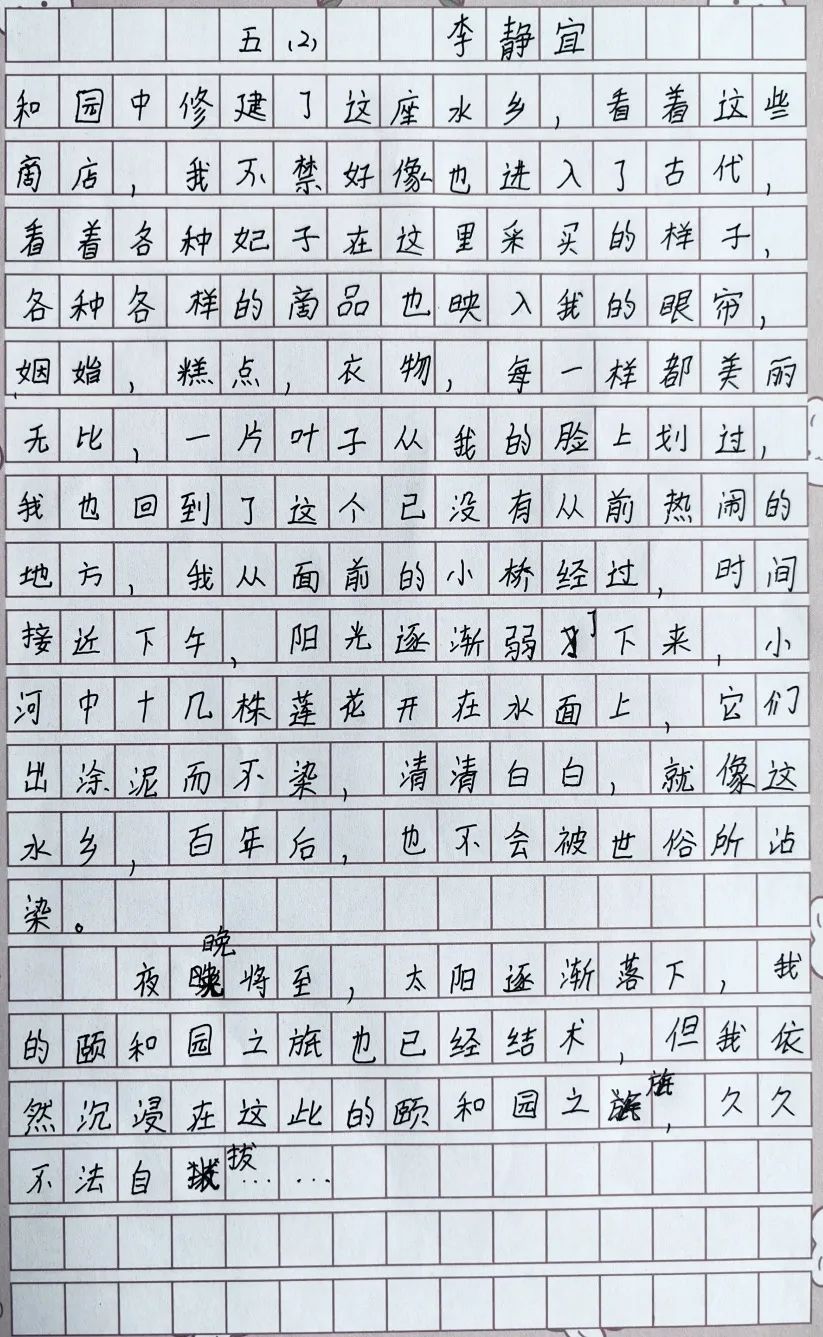 五(2) 李静宜
和园中修建了这座水乡，看着这些
商店，我不禁好像也进入了古代，
看着各种妃子在这里采买的样子，
各种各样的商品也映入我的眼帘，
姻娮，糕点，衣物，每一样都美丽
无比，一片叶子从我的脸上划过，
我也回到了这个已没有从前热闹的
地方，我从面前的小桥经过，时间
接近下午，阳光逐渐弱了下来，小
河中十几株莲花开在水面上，它们
出涂泥而不染，清清白白，就像这
水乡，百年后，也不会被世俗所沾
染。
夜晚将至，太阳逐渐落下，我
的颐和园之旅也已经结术，但我依
然沉浸在这此的颐和园之旅，久久
不法自拔……